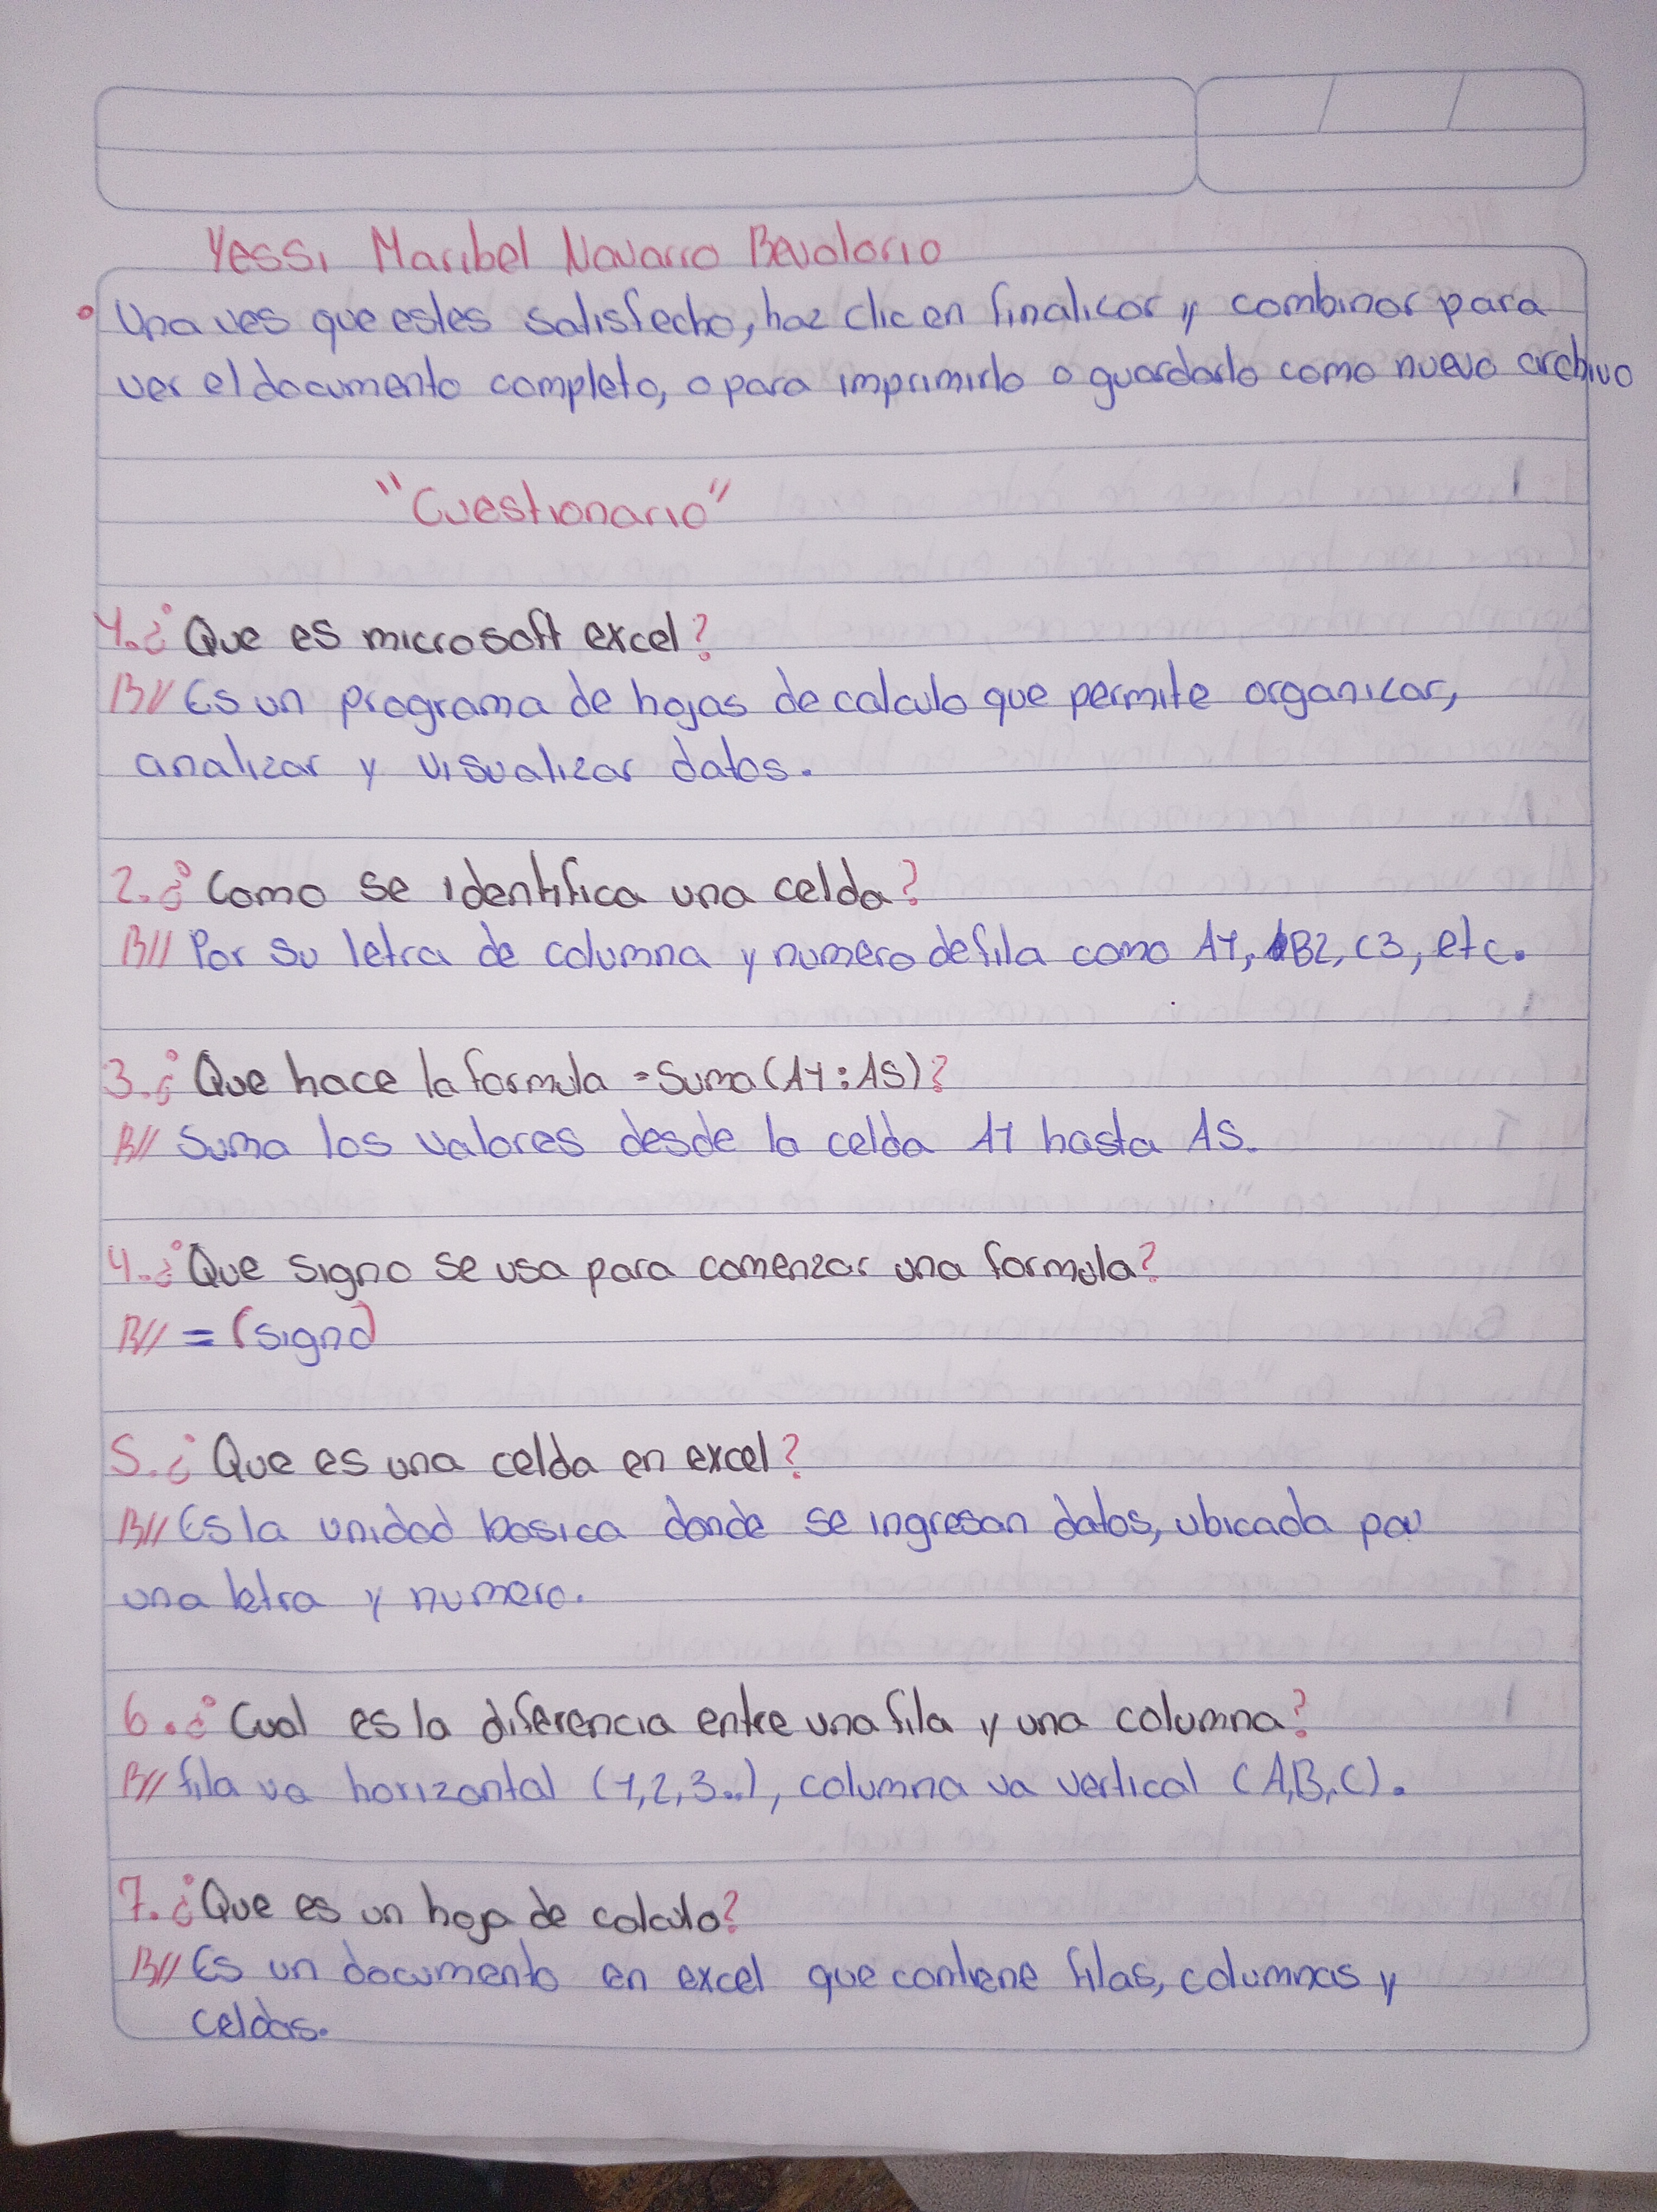 Yessi Maribel Navarro Bevolorio
• Una ves que estes satisfecho, haz clic en finalicar y combinar para
ver el documento completo, o para imprimirlo o guardarlo como nuevo archivo
"Cuestionario"
1. ¿Que es microsoft excel?
R// Es un programa de hojas de calculo que permite organicar,
analizar y visualizar datos.
2. ¿Como se identifica una celda?
R// Por su letra de columna y numero de fila como A1, B2, C3, etc.
3. ¿Que hace la formula =Suma(A1:A5)?
R// Suma los valores desde la celda A1 hasta A5.
4. ¿Que signo se usa para comenzar una formula?
R// = (signo)
5. ¿Que es una celda en excel?
R// Es la unidad basica donde se ingresan datos, ubicada por
una letra y numero.
6. ¿Cual es la diferencia entre una fila y una columna?
R// fila va horizontal (1,2,3..), columna va vertical (A,B,C).
7. ¿Que es un hoja de calculo?
R// Es un documento en excel que contiene filas, columnas y
celdas.